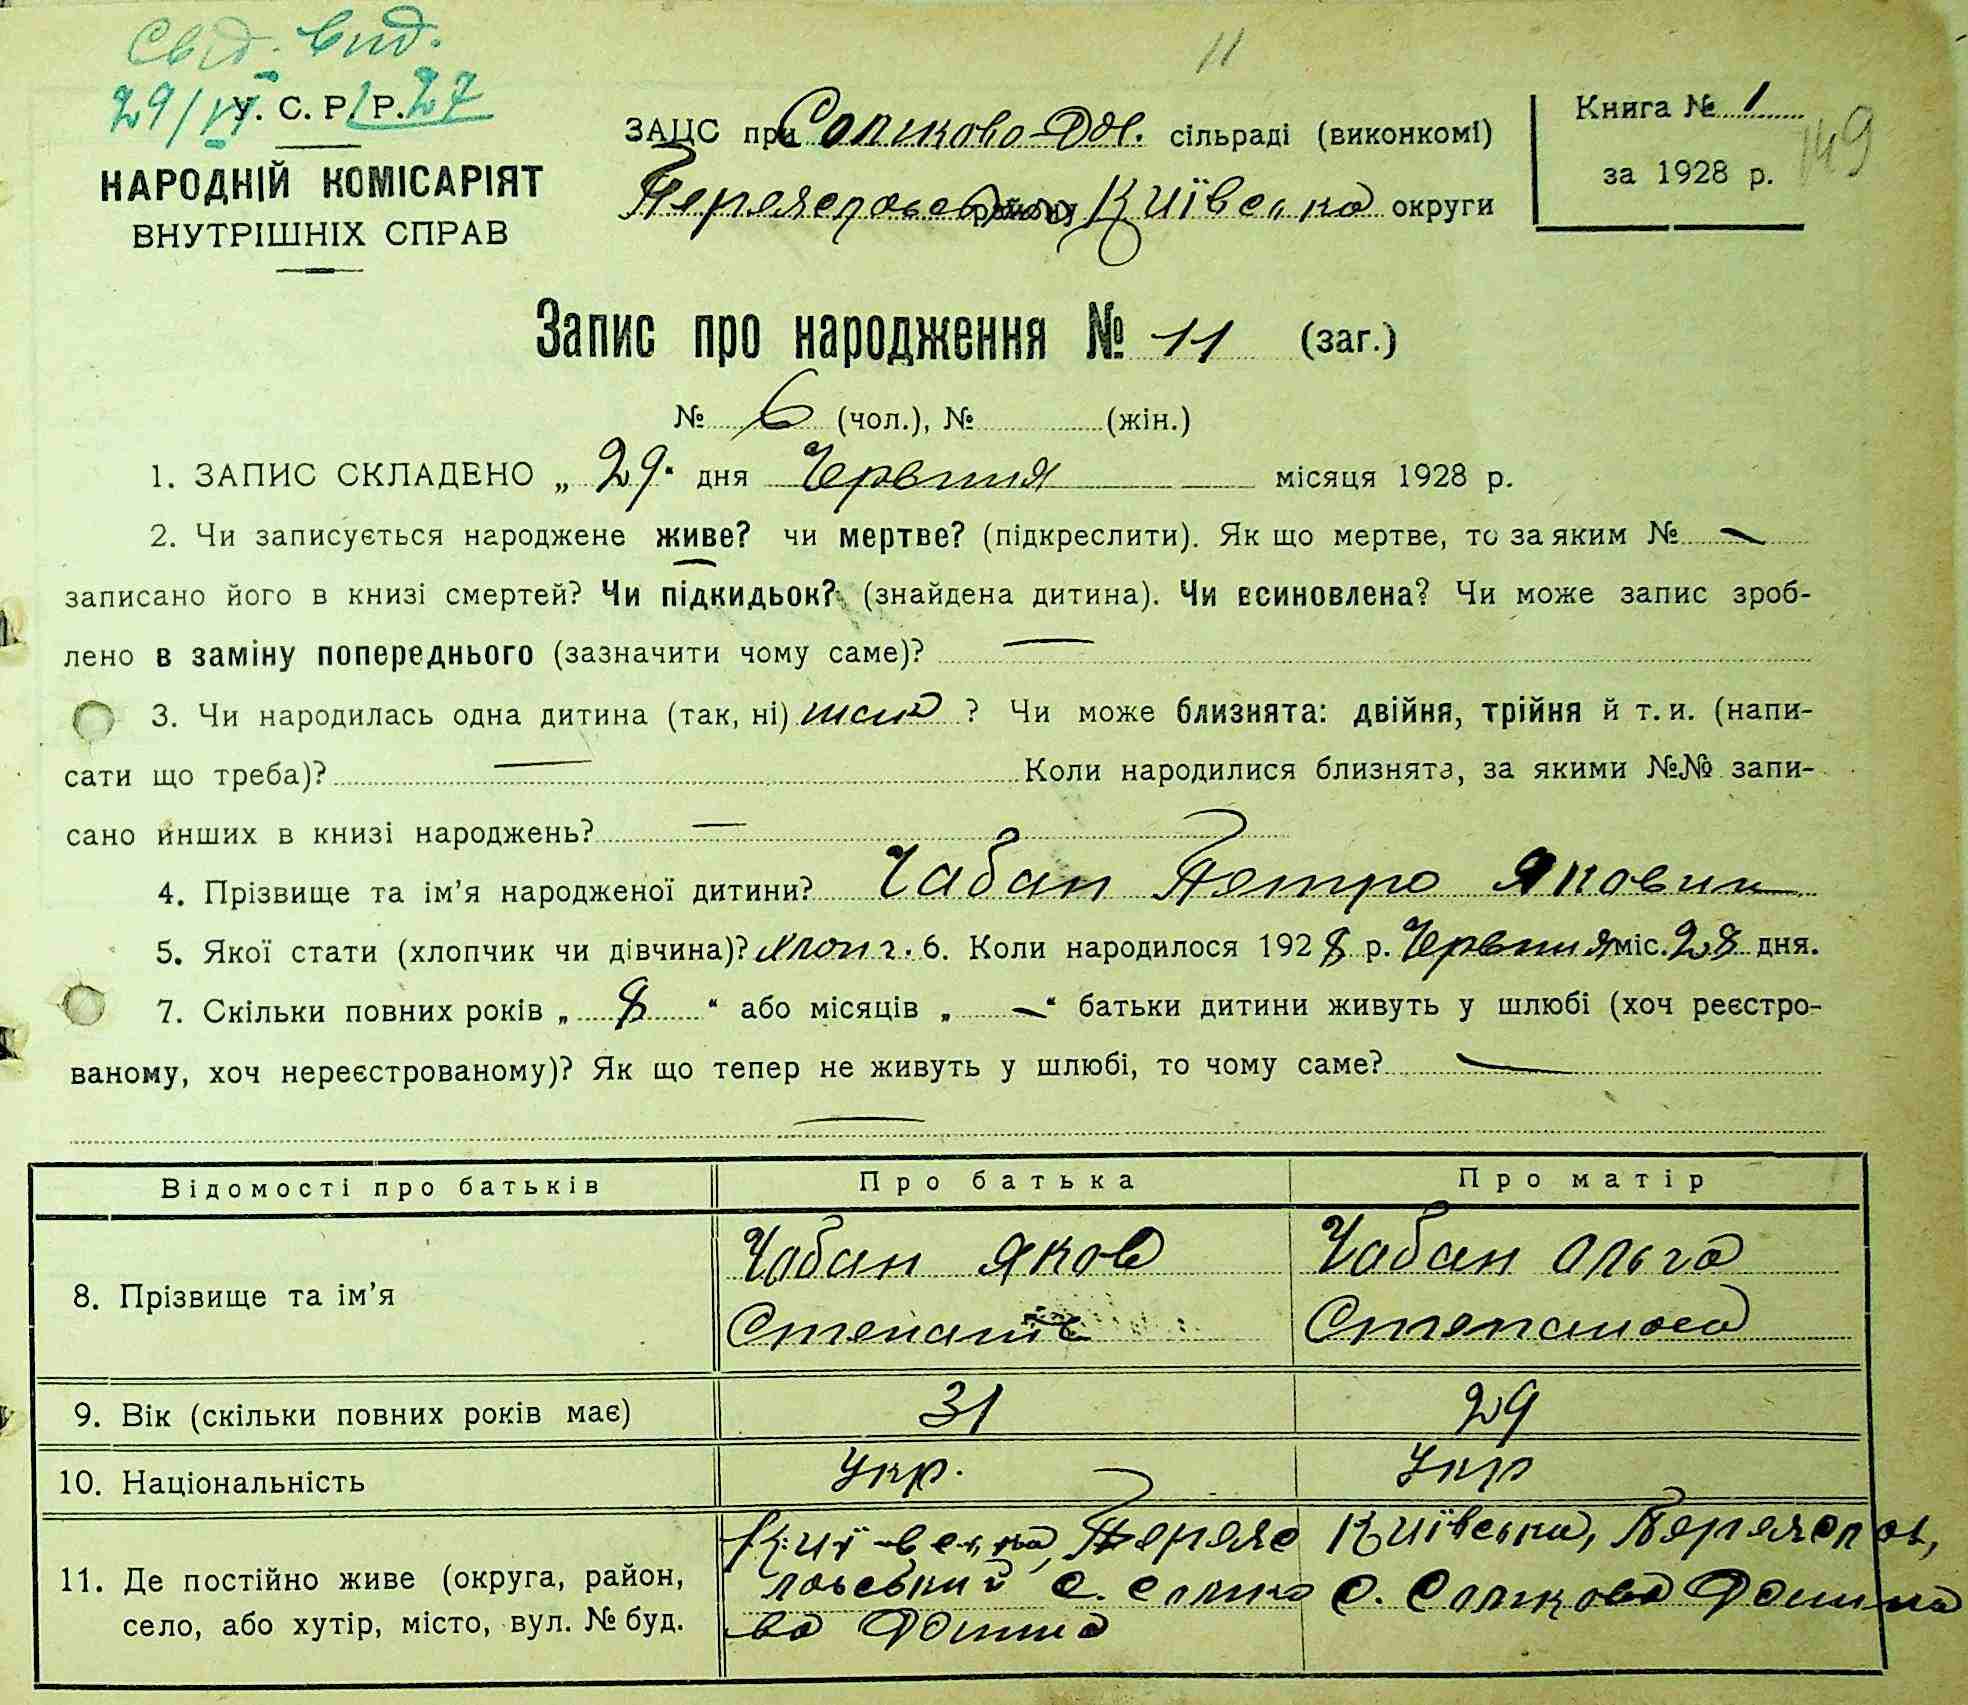 Свід. вид.
29/VI 27
11
У. С. Р. Р.
НАРОДНІЙ КОМІСАРІЯТ
ВНУТРІШНІХ СПРАВ
ЗАЦС при Сомково-Дол. сільраді (виконкомі)
району Київська округи
Книга № 1
за 1928 р.
149
Запис про народження № 11 (заг.)
№ 6 (чол.), № (жін.)
1. ЗАПИС СКЛАДЕНО „ 29 “ дня Червння місяця 1928 р.
2. Чи записується народжене живе? чи мертве? (підкреслити). Як що мертве, то за яким № —
записано його в книзі смертей? Чи підкидьок? (знайдена дитина). Чи всиновлена? Чи може запис зроб-
лено в заміну попереднього (зазначити чому саме)? —
3. Чи народилась одна дитина (так, ні) так ? Чи може близнята: двійня, трійня й т. и. (напи-
сати що треба)? — Коли народилися близнята, за якими №№ запи-
сано инших в книзі народжень? —
4. Прізвище та ім'я народженої дитини? Чабан Петро Якович
5. Якої стати (хлопчик чи дівчина)? хлопч. 6. Коли народилося 1928 р. Червння міс. 28 дня.
7. Скільки повних років „ 8 “ або місяців „ — “ батьки дитини живуть у шлюбі (хоч реєстро-
ваному, хоч нереєстрованому)? Як що тепер не живуть у шлюбі, то чому саме? —
—
Відомості про батьків Про батька Про матір
8. Прізвище та ім'я
Чабан Яков
Степанів
Чабан Ольга
Степанова
9. Вік (скільки повних років має) 31 29
10. Національність Укр. Укр
11. Де постійно живе (округа, район,
село, або хутір, місто, вул. № буд.
Київська, Переяс
лавський с. Сомко
ва Долина
Київська, Переяслав,
с. Сомкова Долина